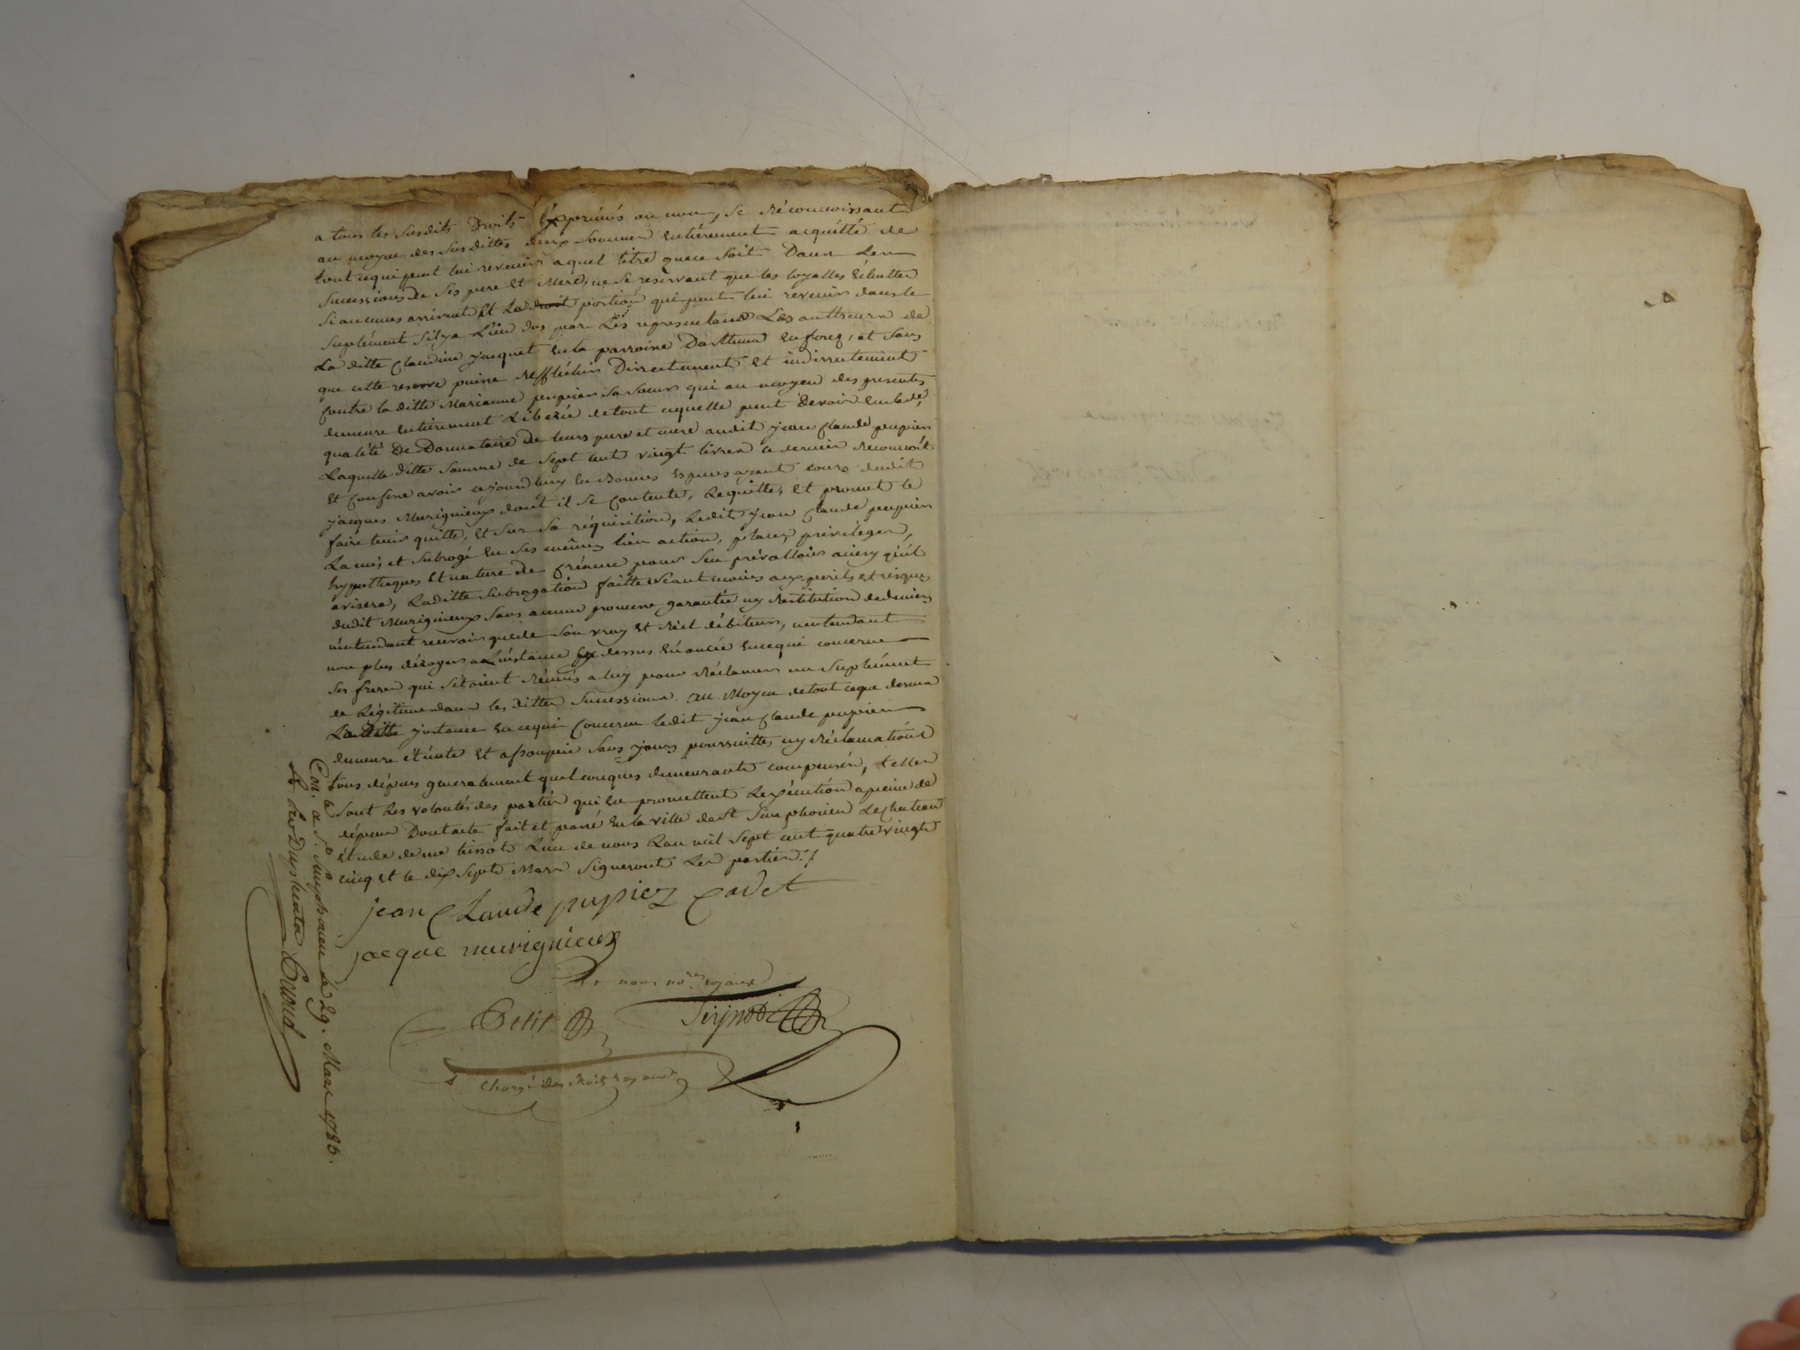 a tous les susdits Droits Exprimés ou non, se réconnoissant
au moyen des susdittes deux sommes entièrement acquitté de
tout cequi peut lui revenir aquel titre quece soit Dans les
sucessions de ses pere et Mere, ne se reservant que les loyalles échuttes
si aucunes arrivent et La portion qui peut lui revenir dans le
suplément s'il ya Lieu dus par Les representans Les autheurs de
La ditte Claudine jacquet en la parroisse en forez, et sans
que cette reserve puisse Refflechir Directement et indirrectement
Contre laditte Marianne pupier sa soeur qui au moyen des presentes
demeure entièrement Liberée de tout cequelle peut devoir en lad.
qualité de Donnataire de leurs pere et mere audit jean Claude pupier
Laquelle ditte somme de sept cent vingt livres ce dernier reconnoit
et Confesse avoir cejourdhuy en Bonnes Espèces ayant cours dudit
jacques Murigneux dont il se contente, Lequitte, et promet le
faire tenir quitte, et sur sa réquisition, Ledit jean Claude pupier
La mis et subrogé en ses mêmes lieu action, places, priviléges,
hypotheques et nature de Créance pour s'en prévalloir ainsy qu'il
avisera, Laditte subrogation faitte Néantmoins aux perils et risques
dudit Murigneux sans aucune promesse garantie ny Restitution de deniers
n'entendant recevoir que de son vray et Réel débiteur, n'entendant
non plus déroger a L'instance dessus énoncée en cequi concerne
ses freres qui s'étoient réunis a luy pour Réclamer un suplément
de Légitime dans les dittes sucessions. au Moyen de tout ceque dessus
La ditte instance en cequi Concerne ledit jean Claude pupier
demeure éteinte et assoupie sans poursuittes ny Réclamations
tous dépens generalement quelconques demeurants compensés, telles
sont Les volontés des parties qui en promettent Lexécution apeine de
dépens Dont acte fait et passé en la ville de st simphorien Le chateau
étude de me L'un de nous Lan mil sept cent quatre vingt
cinq et le dix sept Mars signeront Les parties ./.
jean Claude pupiez Cadet
jacque murigneux
nous no.res royaux
Petit
chargé des
Con.lé a S.t Simphorien le 29. Mars 1785.